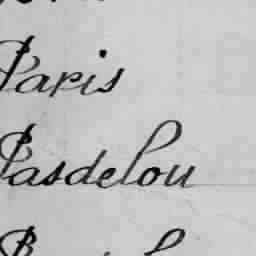 Paris
Pasdelou